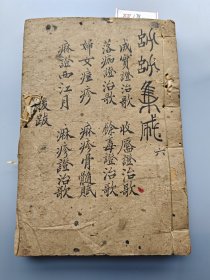 集
六
成實證治歌 收靨證治歌
落痂證治歌 餘毒證治歌
婦女痘疹 麻疹骨髓賦
麻證西江月 麻疹證治歌
後跋